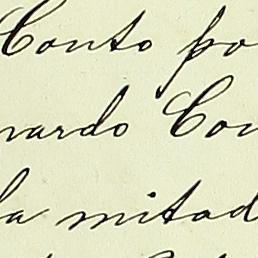 Conto po
nardo Con
la mitad